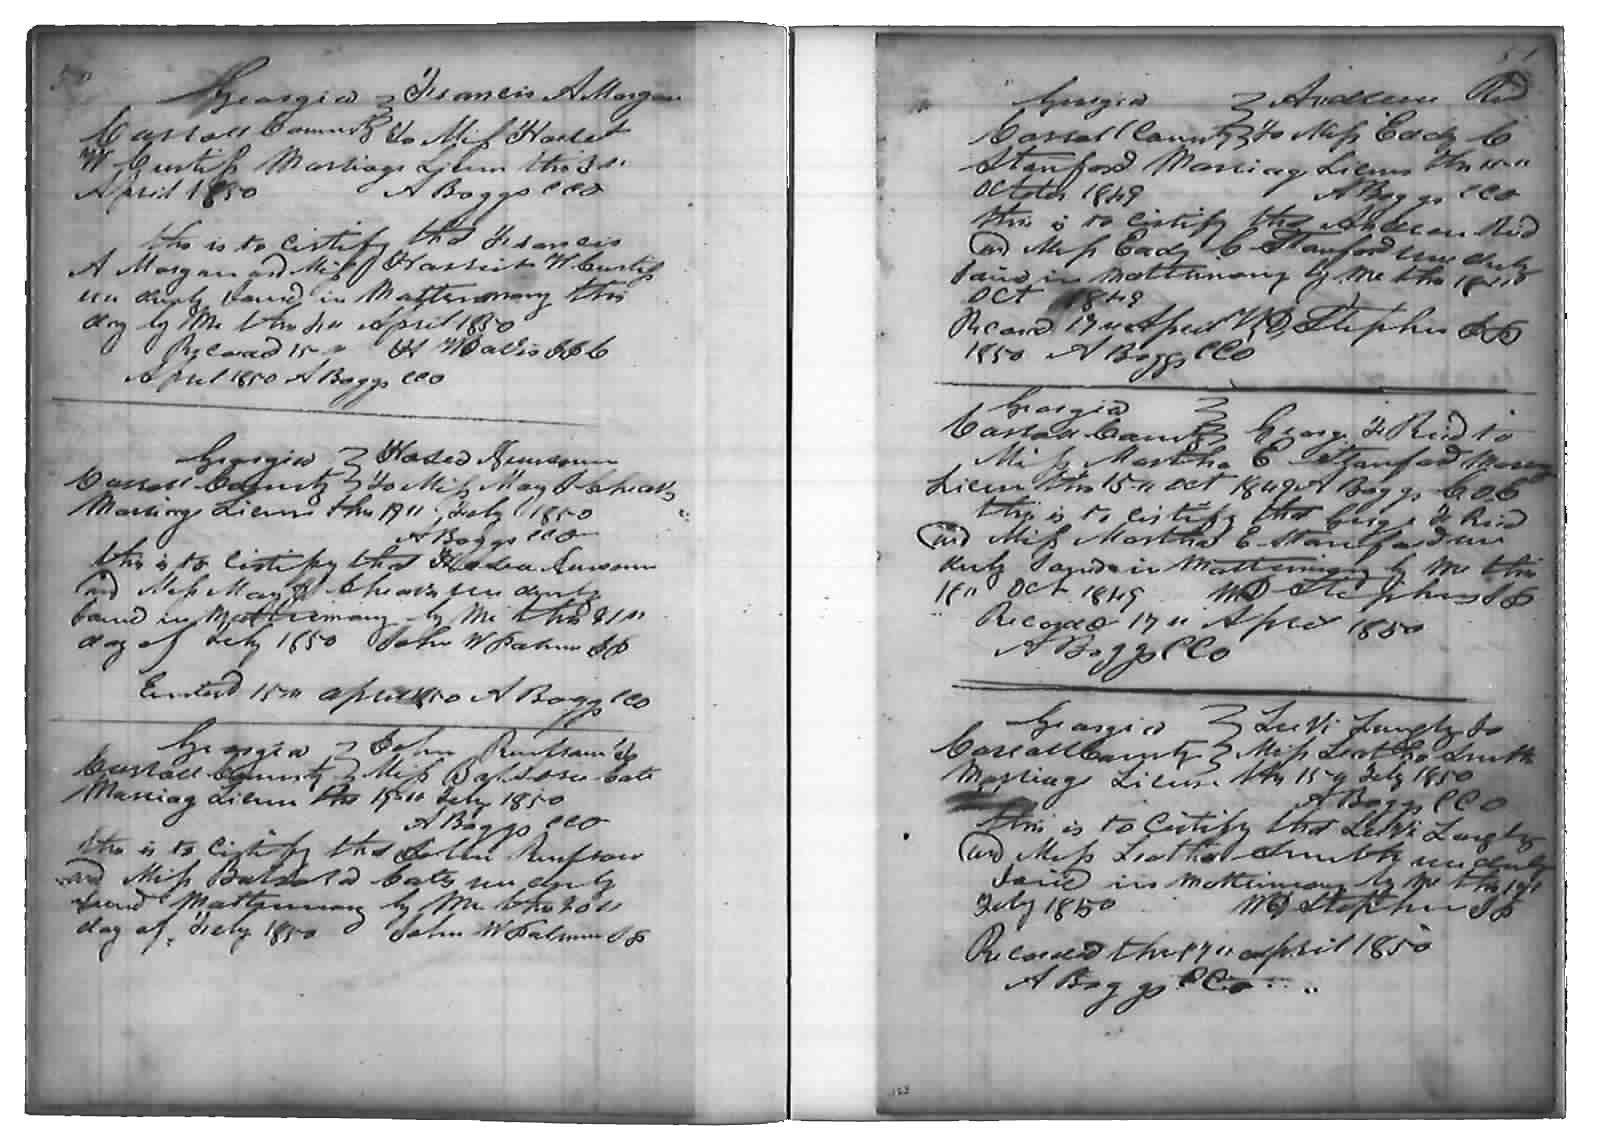 50
Georgia } Francis A Morgan
Carroll County } to Miss Harriet
W Curtiss Marriage Licens this 3d
April 1850 A Boggs CCO
this is to certify that Francis
A Morgan and Miss Harriet W Curtiss
were duly Joined in Mattrimony this
day by Me this April 1850
Record 15 H W
April 1850 A Boggs CCO
Georgia }
Carroll County } to Miss Mary
Marriage Licens this 19" Feby 1850
A Boggs CCO
this is to certify that
and Miss Mary were duly
Joined in Mattrimony by Me this 21"
day of Feby 1850 John W
Enterd 15" april 1850 A Boggs CCO
Georgia } John Renfrow to
Carroll County } Miss Cates
Marriag Licens this 19" Feby 1850
A Boggs CCO
this is to certify that John Renfrow
and Miss Cates were duly
Joined Mattrimony by Me this 20"
day of Feby 1850 John W
51
Georgia } Andrew Reid
Carroll County } to Miss Eady C
Stanford Marriag Licens this
October 1849 A Boggs CCO
this is to certify that Andrew Reid
and Miss Eady C Stanford were duly
Joined in Mattrimony by Me this 18"
Oct 1849
Record 17" April W D Stephens JP
1850 A Boggs CCO
Georgia }
Carroll County } George F Reid to
Miss Martha E Stanford
Licens this 15" Oct 1849 A Boggs C.C.O
this is to certify that George F Reid
and Miss Martha E Stanford were
duly Joined in Mattrimony by Me this
18" Oct 1849 WD Stephens JP
Recorded 17" April 1850
A Boggs CCO
Georgia } Levi Langly to
Carroll County } Miss Leatha Smith
Marriage License this 15" Feby 1850
A Boggs CCO
this is to Certify that Levi Langly
and Miss Leatha Smith were duly
Joined in Mattrimony by Me this
Feby 1850 WD Stephens JP
Recorded the 17" april 1850
A Boggs CCo
153